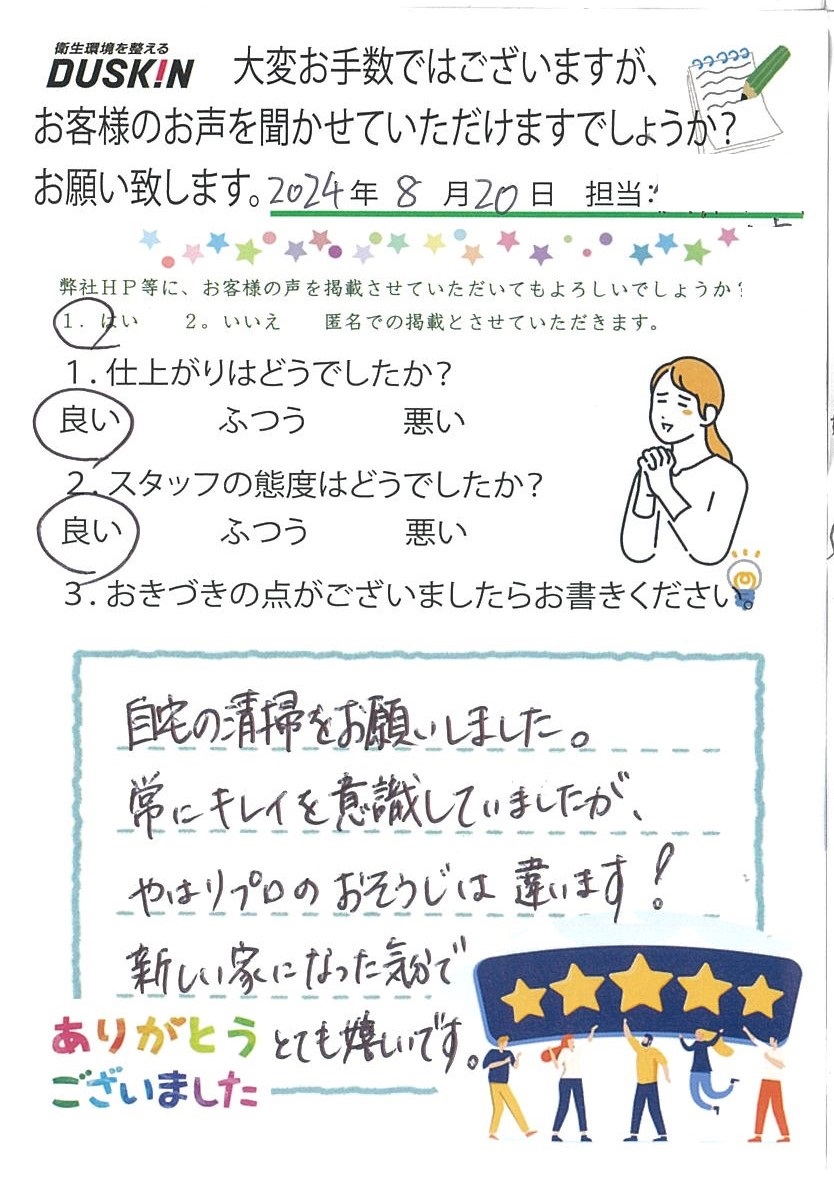 衛生環境を整える
DUSKIN
大変お手数ではございますが、
お客様のお声を聞かせていただけますでしょうか?
お願い致します。2024年 8 月20日 担当:
弊社HP等に、お客様の声を掲載させていただいてもよろしいでしょうか?
1. はい 2。いいえ 匿名での掲載とさせていただきます。
1.仕上がりはどうでしたか?
良い ふつう 悪い
2.スタッフの態度はどうでしたか?
良い ふつう 悪い
3.おきづきの点がございましたらお書きください。
自宅の清掃をお願いしました。
常にキレイを意識していましたが、
やはりプロのおそうじは違います!
新しい家になった気分で
とても嬉しいです。
ありがとう
ございました